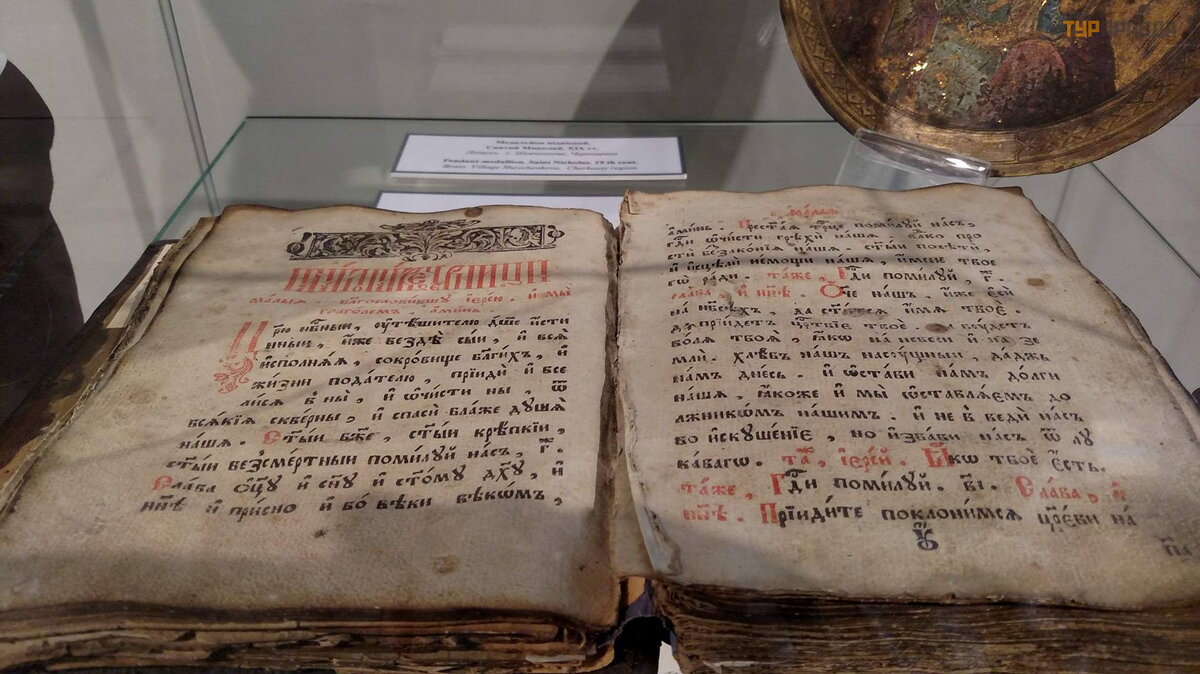 ТУР
Медальйон підвісний.
Святий Миколай. XIX ст.
Pendant-medallion. Saint Nicholas, 19 th cent.
Brass. Village Shevchenkove, Cherkassy region
малыѧ . благословившу іерею . и мы
глаголемъ . аминь .
Црю нбⷭ҇ный , ѹтѣшителю дш҃е исти
нный , иже вездѣ сый , и всѧ
исполнѧѧ , сокровище благи́хъ , и
жизни подателю , прїиди и все
лисѧ в ны , и ѡчисти ны , ѿ
всѧкїѧ скверны , и спаси блаже дꙋшѧ
нашѧ . Ст҃ый бж҃е , ст҃ый крѣпкїй ,
ст҃ый безсмертный помилуй насъ , г҃ .
Слава ѻц҃ꙋ и сн҃ꙋ и ст҃омꙋ дх҃ꙋ , и
нн҃ѣ и присно и во вѣки вѣкѡмъ ,
аминь . Прест҃аѧ трⷪ҇це помилуй насъ ,
гдⷭ҇и ѡчисти грѣхи нашѧ влⷣко про
сти беззаконїѧ нашѧ . ст҃ый посѣти ,
и исцѣли немощи нашѧ , имене твоє
гѡ ради . таже , Гдⷭ҇и помилуй , г҃ .
слава , и нн҃ѣ . Ѻ҃че нашъ . иже єси
на нб҃сѣхъ , да ст҃итсѧ имѧ твоє .
да прїидетъ цр҃твїе твоє . да бꙋдетъ
волѧ твоѧ , ꙗкѡ на небеси и на зе
мли . хлѣбъ нашъ насꙋщный , даждь
намъ днесь . и ѡстави намъ долги
нашѧ , ꙗкоже и мы ѡставлѧемъ до
лжникѡмъ нашим . и не в веди насъ
во искушенїе , но избави насъ ѿ лꙋ
каваго . та , іерей . Ꙗкѡ твоє єсть .
таже , Гдⷭ҇и помилуй . в҃і . Слава , и
нн҃ѣ . Прїидите поклонимсѧ цр҃еви на